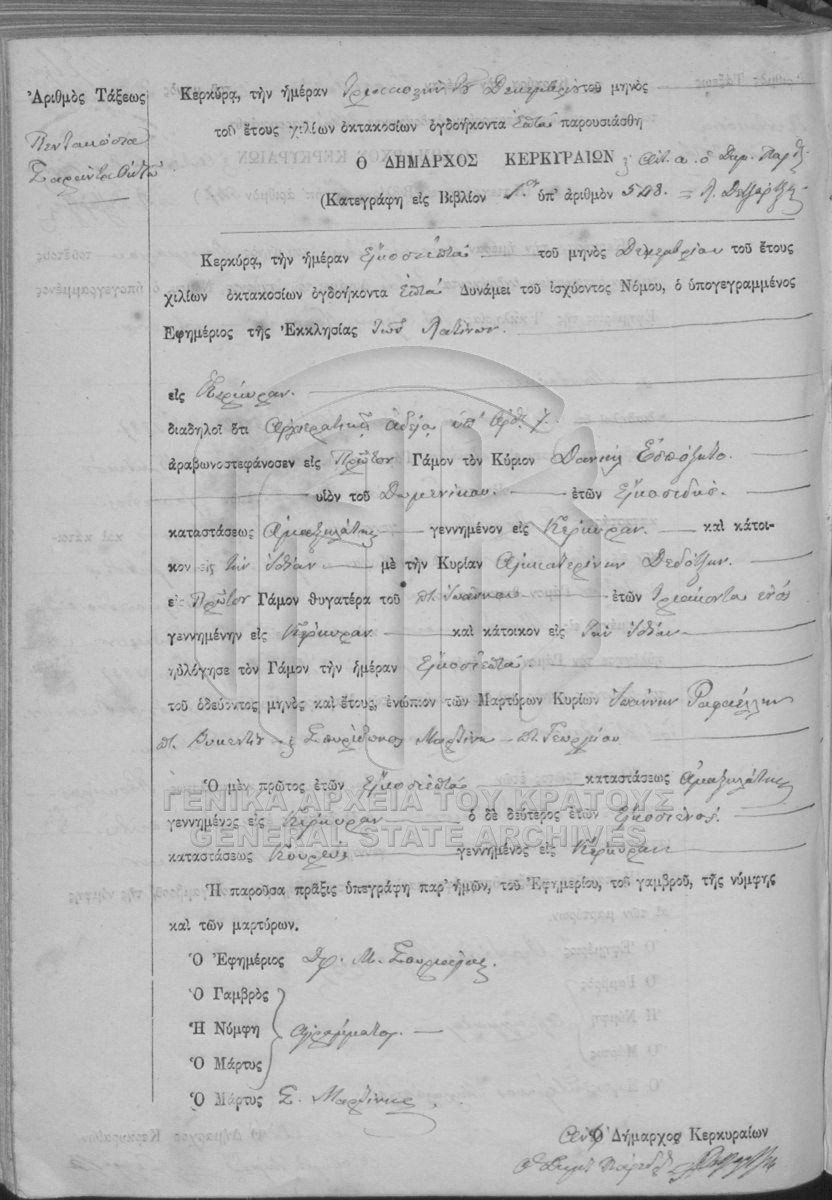 Ἀριθμὸς Τάξεως
Πεντακόσια
Σαράντα Ὀκτώ
Κερκύρα, τὴν ἡμέραν Δεκεμβρίου τοῦ μηνὸς
τοῦ ἔτους χιλίων ὀκτακοσίων ὀγδοήκοντα ἑπτά παρουσιάσθη
Ὁ ΔΗΜΑΡΧΟΣ ΚΕΡΚΥΡΑΙΩΝ
(Κατεγράφη εἰς Βιβλίον ὑπ' ἀριθμὸν 548.
Κερκύρα, τὴν ἡμέραν Εἴκοσι ἑπτά τοῦ μηνὸς Δεκεμβρίου τοῦ ἔτους
χιλίων ὀκτακοσίων ὀγδοήκοντα ἑπτά Δυνάμει τοῦ ἰσχύοντος Νόμου, ὁ ὑπογεγραμμένος
Ἐφημέριος τῆς Ἐκκλησίας τῶν Λατίνων.
εἰς Κέρκυραν.
διαδηλοῖ ὅτι Ἀρχιερατικῇ ἀδείᾳ ὑπ' ἀρθ.
ἀραβωνοστεφάνοσεν εἰς Πρῶτον Γάμον τὸν Κύριον Δανιήλ Ἐσπόζιτο.
υἱὸν τοῦ Δομενίκου. ἐτῶν Εἴκοσι δύο.
καταστάσεως Ἁμαξηλάτης γεννημένον εἰς Κέρκυραν. καὶ κάτοι-
κον εἰς τὴν ἰδίαν μὲ τὴν Κυρίαν Αἰκατερίνην
εἰς Πρῶτον Γάμον θυγατέρα τοῦ Ἰωάννου ἐτῶν τριάκοντα ἑνός
γεννημένην εἰς Κέρκυραν καὶ κάτοικον εἰς τὴν ἰδίαν
ηὐλόγησε τὸν Γάμον τὴν ἡμέραν Εἴκοσι ἑπτά
τοῦ ὁδεύοντος μηνὸς καὶ ἔτους, ἐνώπιον τῶν Μαρτύρων Κυρίων Ἰωάννην Ραφαέλλη
Σπυρίδωνος Μαρτίνη Γεωργίου
Ὁ μὲν πρῶτος ἐτῶν Εἴκοσι ἑπτά καταστάσεως Ἁμαξηλάτης
γεννημένος εἰς Κέρκυραν ὁ δὲ δεύτερος ἐτῶν
καταστάσεως Κουρεύς γεννημένος εἰς Κέρκυραν
Ἡ παροῦσα πρᾶξις ὑπεγράφη παρ' ἡμῶν, τοῦ Ἐφημερίου, τοῦ γαμβροῦ, τῆς νύμφης
καὶ τῶν μαρτύρων.
Ὁ Ἐφημέριος
Ὁ Γαμβρὸς
Ἡ Νύμφη ἀγράμματοι.
Ὁ Μάρτυς
Ὁ Μάρτυς Σ. Μαρτίνης
Ὁ Δήμαρχος Κερκυραίων
ΓΕΝΙΚΑ ΑΡΧΕΙΑ ΤΟΥ ΚΡΑΤΟΥΣ
GENERAL STATE ARCHIVES